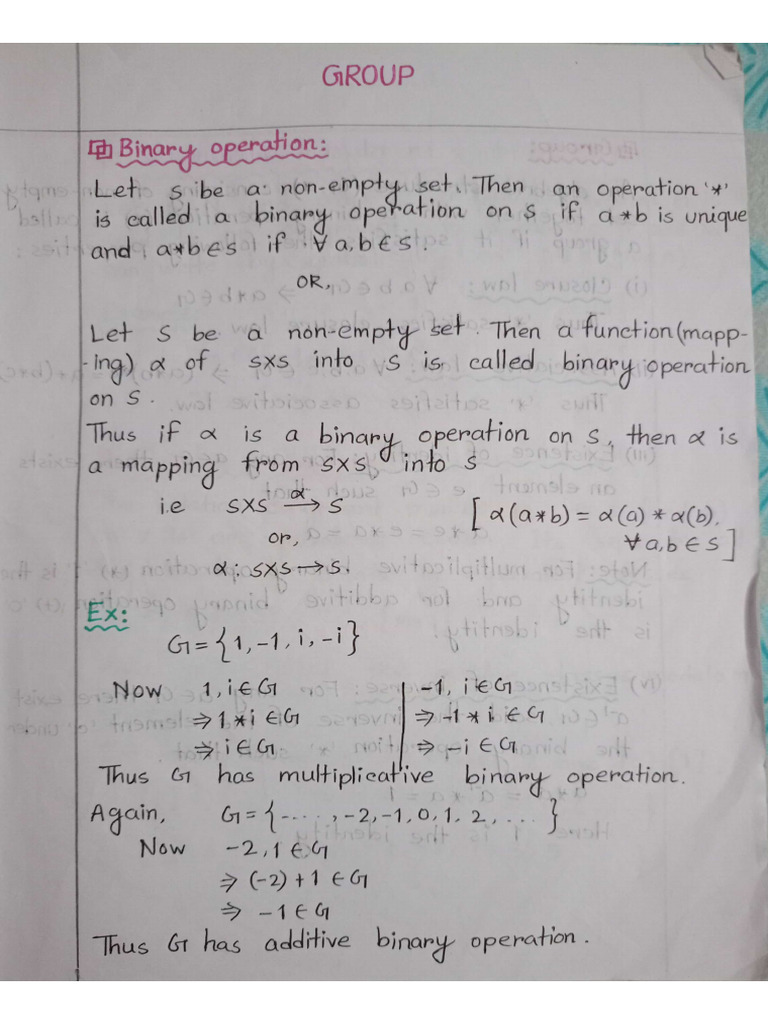 GROUP
Binary operation:
Let S be a non-empty set. Then an operation '*'
is called a binary operation on S if a*b is unique
and a*b∈S if ∀ a,b∈S.
OR,
Let S be a non-empty set. Then a function (mapp-
-ing) α of S×S into S is called binary operation
on S.
Thus if α is a binary operation on S, then α is
a mapping from S×S into S
i.e S×S →α S [α(a*b) = α(a) * α(b),
or, ∀ a,b ∈ S]
α: S×S→S.
Ex:
G = {1, -1, i, -i}
Now 1, i ∈ G | -1, i ∈ G
⇒ 1 * i ∈ G | ⇒ -1 * i ∈ G
⇒ i ∈ G | ⇒ -i ∈ G
Thus G has multiplicative binary operation.
Again, G = {-...., -2, -1, 0, 1, 2, ....}
Now -2, 1 ∈ G
⇒ (-2) + 1 ∈ G
⇒ -1 ∈ G
Thus G has additive binary operation.